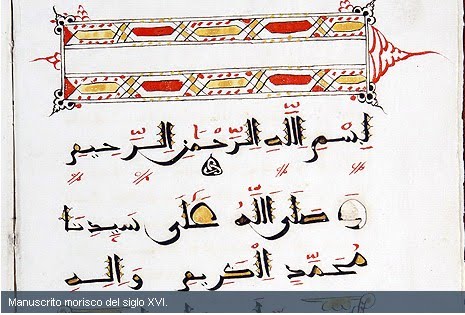 بِسْمِ اللَّهِ الرَّحْمَٰنِ الرَّحِيمِ
وَ صَلَى اللَّهُ عَلَى سَيِدِنَا
مُحَمَّدٍ الْكَرِيمِ وَالِهِ
Manuscrito morisco del siglo XVI.